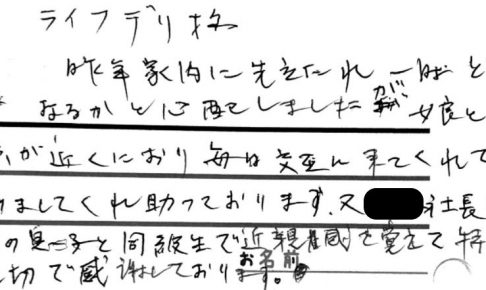 ライフデリ様
昨年家内に先立たれ一時と
なるかと心配しましたが娘と
が近くにおり毎日交互に来てくれて
ましてくれ助っております。又 社長
の息子と同級生で近親感を覚えて特
切で感謝しております。
お名前